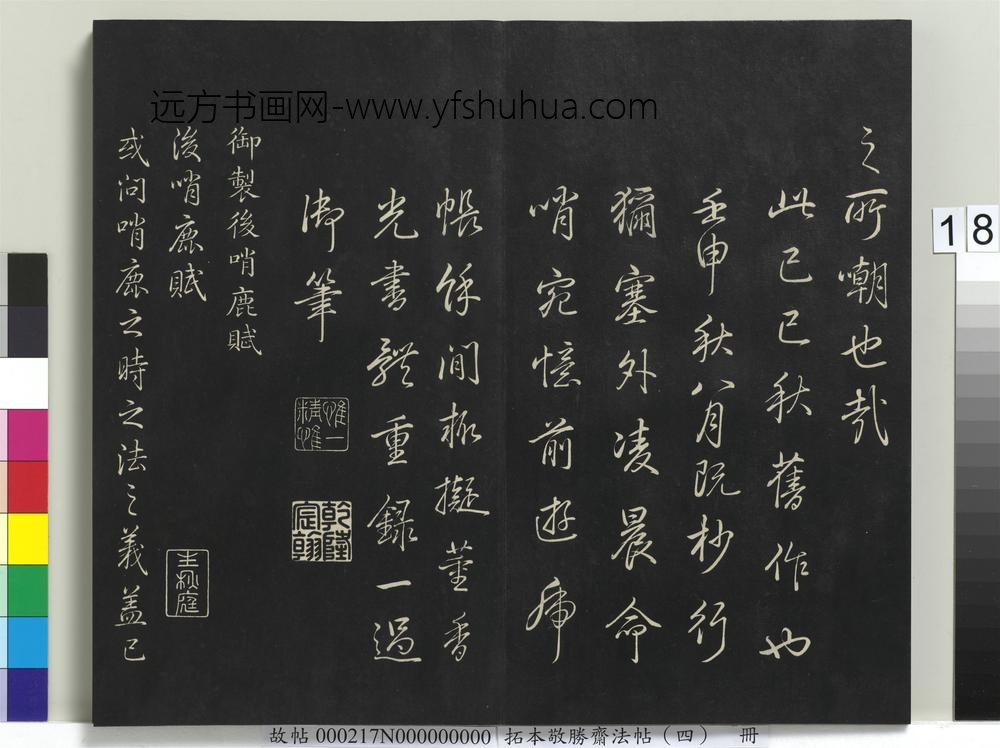 之所嘲也哉
此己巳秋舊作也
壬申秋八月既杪行
獮塞外凌晨命
哨宛憶前遊席
帳餘閒抝擬董香
光書體重錄一過
御筆
惟精惟一
乾隆宸翰
御製後哨鹿賦
後哨鹿賦
或問哨鹿之時之法之義蓋已
远方书画网-www.yfshuhua.com
18
故帖 000217N000000000 拓本敬勝齋法帖（四） 冊